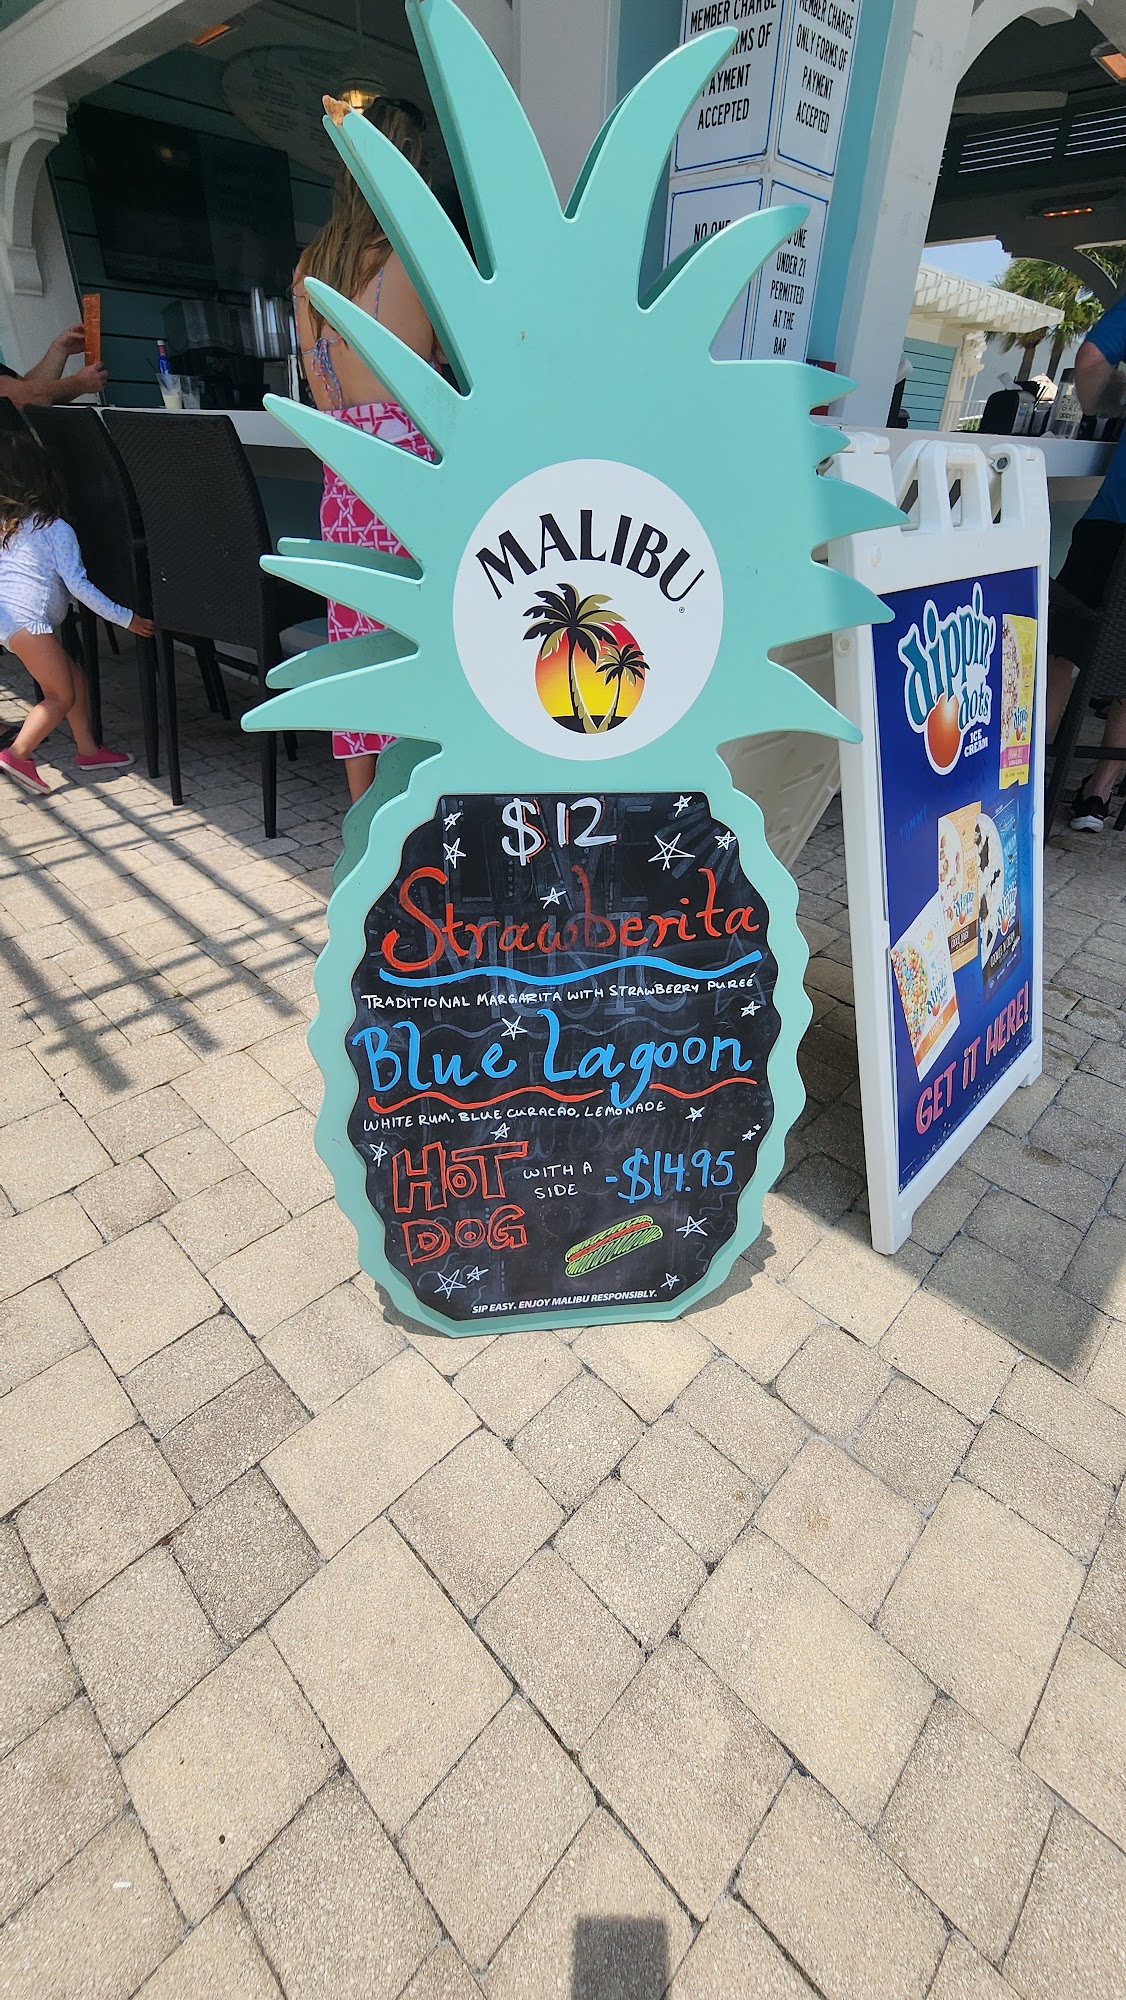 MEMBER CHARGE
FORMS OF
PAYMENT
ACCEPTED
MEMBER CHARGE
ONLY FORMS OF
PAYMENT
ACCEPTED
NO ONE
NO ONE
UNDER 21
PERMITTED
AT THE
BAR
MALIBU
$12
Strawberita
TRADITIONAL MARGARITA WITH STRAWBERRY PUREÉ
Blue Lagoon
WHITE RUM, BLUE CURACAO, LEMONADE
HOT WITH A -$14.95
SIDE
DOG
SIP EASY. ENJOY MALIBU RESPONSIBLY.
dippin'
dots
ICE
CREAM
YUMM!
GET iT HERE!